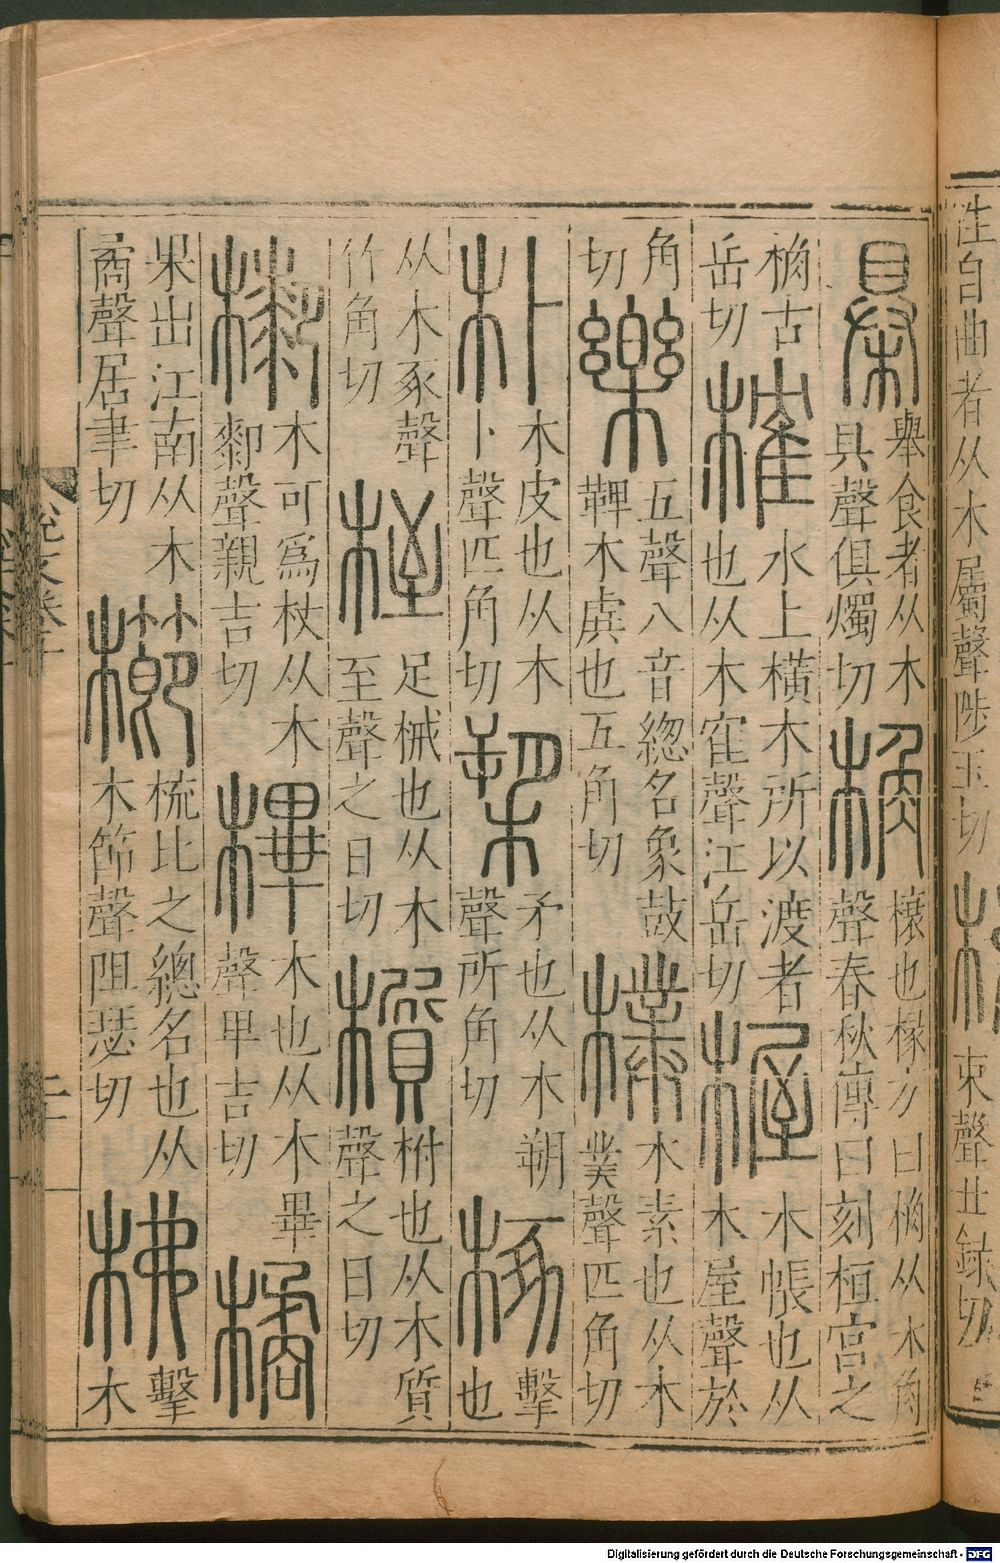 性自曲者从木屬聲陟玉切
束聲丑録切
舉食者从木
具聲俱燭切
桷
榱也椽方曰桷从木角
聲春秋傳曰刻桓宮之
桷古
岳切
榷
水上橫木所以渡者
也从木隺聲江岳切
楃
木帳也从
木屋聲於
角
切
樂
五聲八音總名象鼓
鞞木虡也五角切
樸
木素也从木
菐聲匹角切
朴
木皮也从木
卜聲匹角切
槊
矛也从木朔
聲所角切
椓
擊
也
从木豖聲
竹角切
桎
足械也从木
至聲之日切
櫍
柎也从木質
聲之日切
木可爲杖从木
厀聲親吉切
㮿
木也从木畢
聲卑吉切
橘
果出江南从木
矞聲居聿切
櫛
梳比之總名也从
木節聲阻瑟切
柫
擊
木
說文卷十
Digitalisierung gefördert durch die Deutsche Forschungsgemeinschaft - DFG